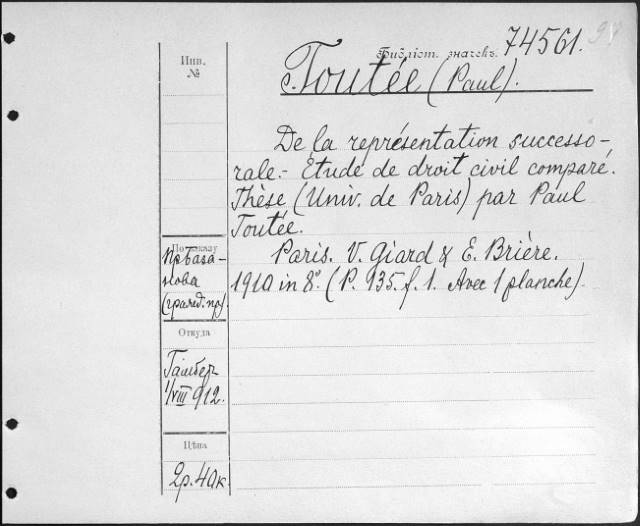 Библіот. значекъ. 74561.
Toutée (Paul).
Инв.
№
De la représentation successo-
rale.- Étude de droit civil comparé.
Thèse (Univ. de Paris) par Paul
Toutée.
Paris. V. Giard & E. Brière.
1910 in 8º. (P. 135. f. 1. Avec 1 planche).
По заказу
нова
(гражд. пр)
Откуда
1/VIII 912.
Цѣна
2р. 40к